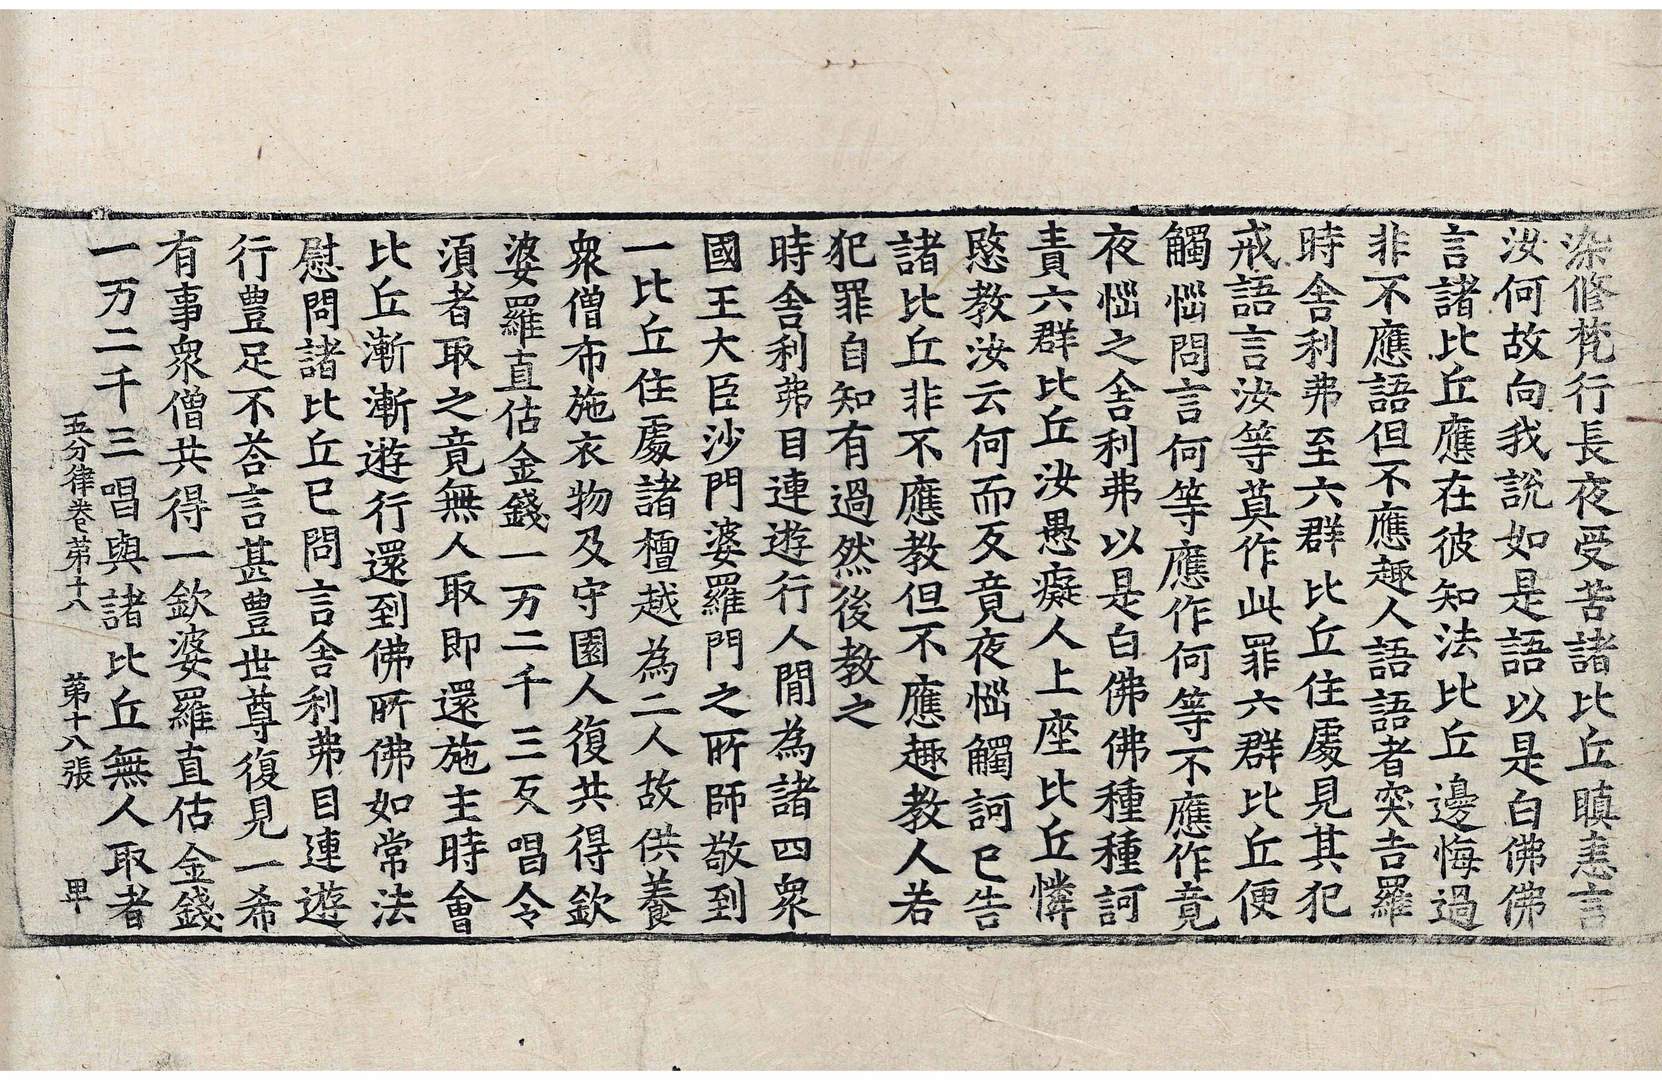 染修梵行長夜受苦諸比丘瞋恚言
汝何故向我說如是語以是白佛佛
言諸比丘應在彼知法比丘邊悔過
非不應語但不應趣人語語者突吉羅
時舍利弗至六群比丘住處見其犯
戒語言汝等莫作此罪六群比丘便
觸惱問言何等應作何等不應作竟
夜惱之舍利弗以是白佛佛種種訶
責六群比丘汝愚癡人上座比丘憐
愍教汝云何而反竟夜惱觸訶已告
諸比丘非不應教但不應趣教人若
犯罪自知有過然後教之
時舍利弗目連遊行人間為諸四眾
國王大臣沙門婆羅門之所師敬到
一比丘住處諸檀越為二人故供養
眾僧布施衣物及守園人復共得欽
婆羅直估金錢一万二千三反唱令
須者取之竟無人取即還施主時會
比丘漸漸遊行還到佛所佛如常法
慰問諸比丘已問言舍利弗目連遊
行豊足不荅言甚豊世尊復見一希
有事眾僧共得一欽婆羅直估金錢
一万二千三唱與諸比丘無人取者
五分律卷苐十八 苐十八張 甲